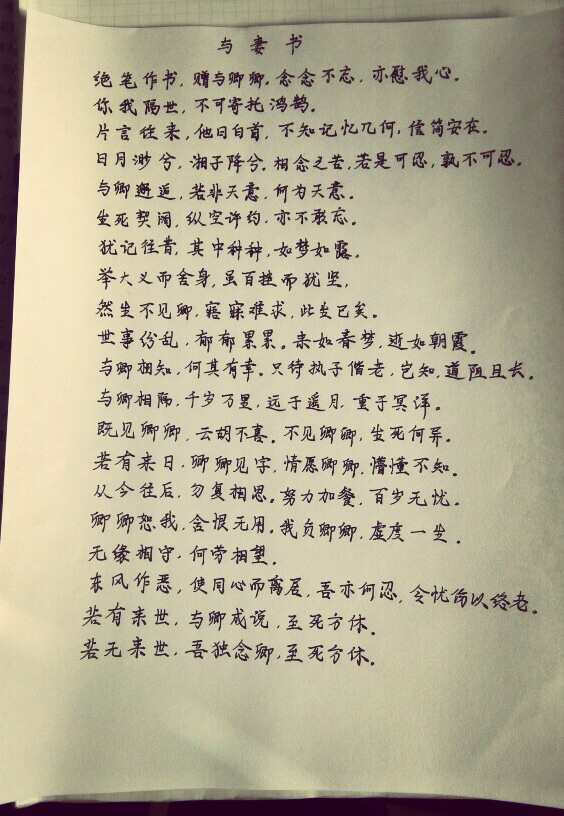 与妻书
绝笔作书，赠与卿卿。念念不忘，亦慰我心。
你我隔世，不可寄托鸿鹄。
片言往来，他日白首，不知记忆几何，信简安在。
日月渺兮，湘子降兮。相念之苦，若是可忍，孰不可忍。
与卿邂逅，若非天意，何为天意。
生死契阔，纵空许约，亦不敢忘。
犹记往昔，其中种种，如梦如露。
举大义而舍身，虽百挫而犹坚，
然生不见卿，寤寐难求，此生已矣。
世事纷乱，郁郁累累。来如春梦，逝如朝霞。
与卿相知，何其有幸。只待执子偕老，岂知，道阻且长。
与卿相隔，千岁万里，远于遥月，重于冥洋。
既见卿卿，云胡不喜。不见卿卿，生死何异。
若有来日，卿卿见字，情愿卿卿，懵懂不知。
从今往后，勿复相思。努力加餐，百岁无忧。
卿卿恕我，含恨无用。我负卿卿，虚度一生。
无缘相守，何劳相望。
东风作恶，使同心而离居，吾亦何忍，令忧伤以终老。
若有来世，与卿成说，至死方休。
若无来世，吾独念卿，至死方休。